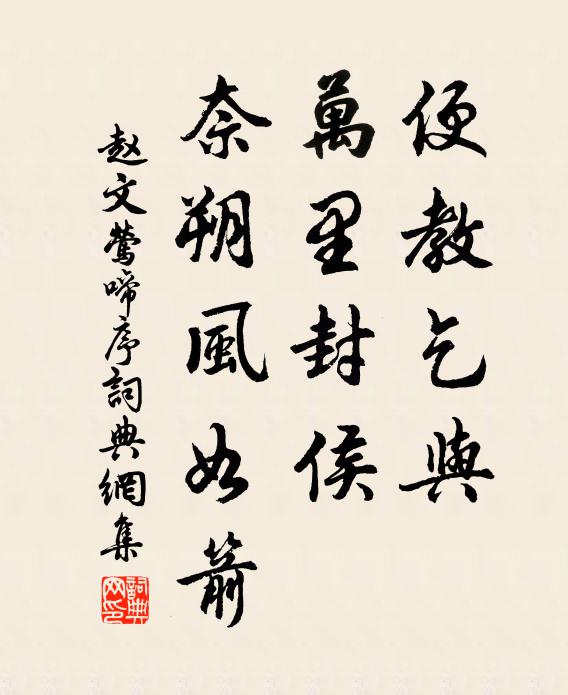 便教乞與
萬里封侯
奈朔風如箭
赵文鶯啼序詞典網集
詞典网印